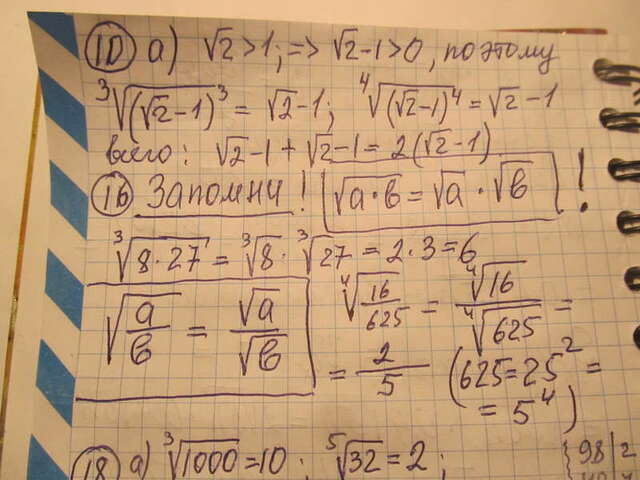 10 а) √2 > 1; => √2-1>0, поэтому
³√(√2-1)³ = √2-1; ⁴√(√2-1)⁴ = √2-1
всего: √2-1 + √2-1 = 2(√2-1)
16 Запомни! √a·b = √a · √b !
³√8·27 = ³√8 · ³√27 = 2·3=6
√a/b = √a/√b
⁴√16/625 = ⁴√16/⁴√625 =
= 2/5 (625=25² =
= 5⁴)
18 а) ³√1000 = 10; ⁵√32 = 2;
98|2